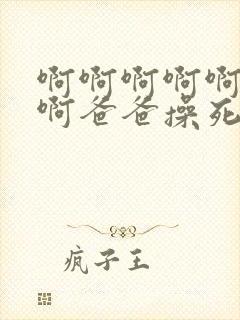 啊啊啊啊啊
啊爸爸操死
疯子王